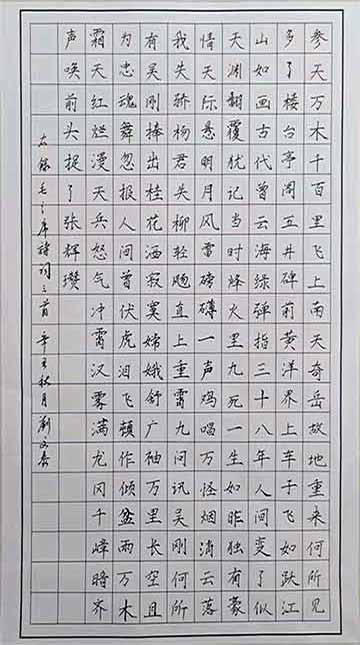 参天万木千百里飞上南天奇岳故地重来何所见
多了楼台亭阁五井碑前黄洋界上车子飞如跃江
山如画古代曾云海绿弹指三十八年人间变了似
天渊翻覆犹记当时烽火里九死一生如昨独有豪
情天际悬明月风雷磅礴一声鸡唱万怪烟消云落
我失骄杨君失柳轻飏直上重霄九问讯吴刚何所
有吴刚捧出桂花酒寂寞嫦娥舒广袖万里长空且
为忠魂舞忽报人间曾伏虎泪飞顿作倾盆雨万木
霜天红烂漫天兵怒气冲霄汉雾满龙冈千嶂暗齐
声唤前头捉了张辉瓒
右录毛主席诗词三首 辛丑秋月刘文